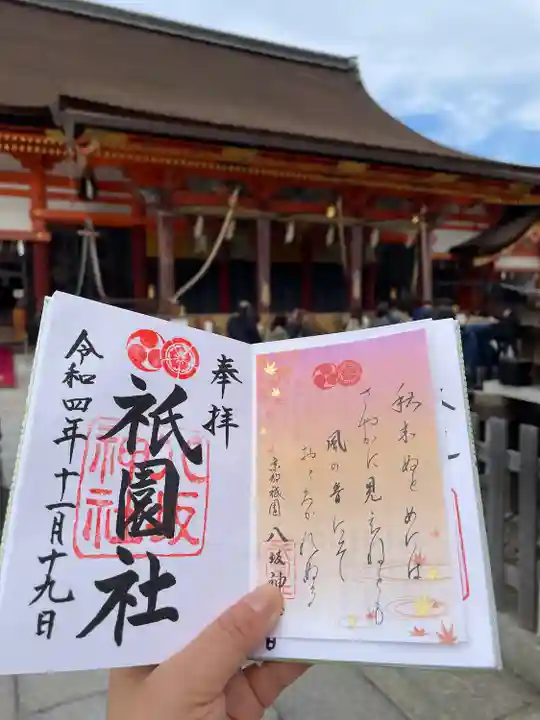 奉拝
祇園社
八坂神社
令和四年十一月十九日
秋来ぬとめには
さやかに見えねとも
風の音にそ
おとろかれぬる
京都祇園 八坂神
日